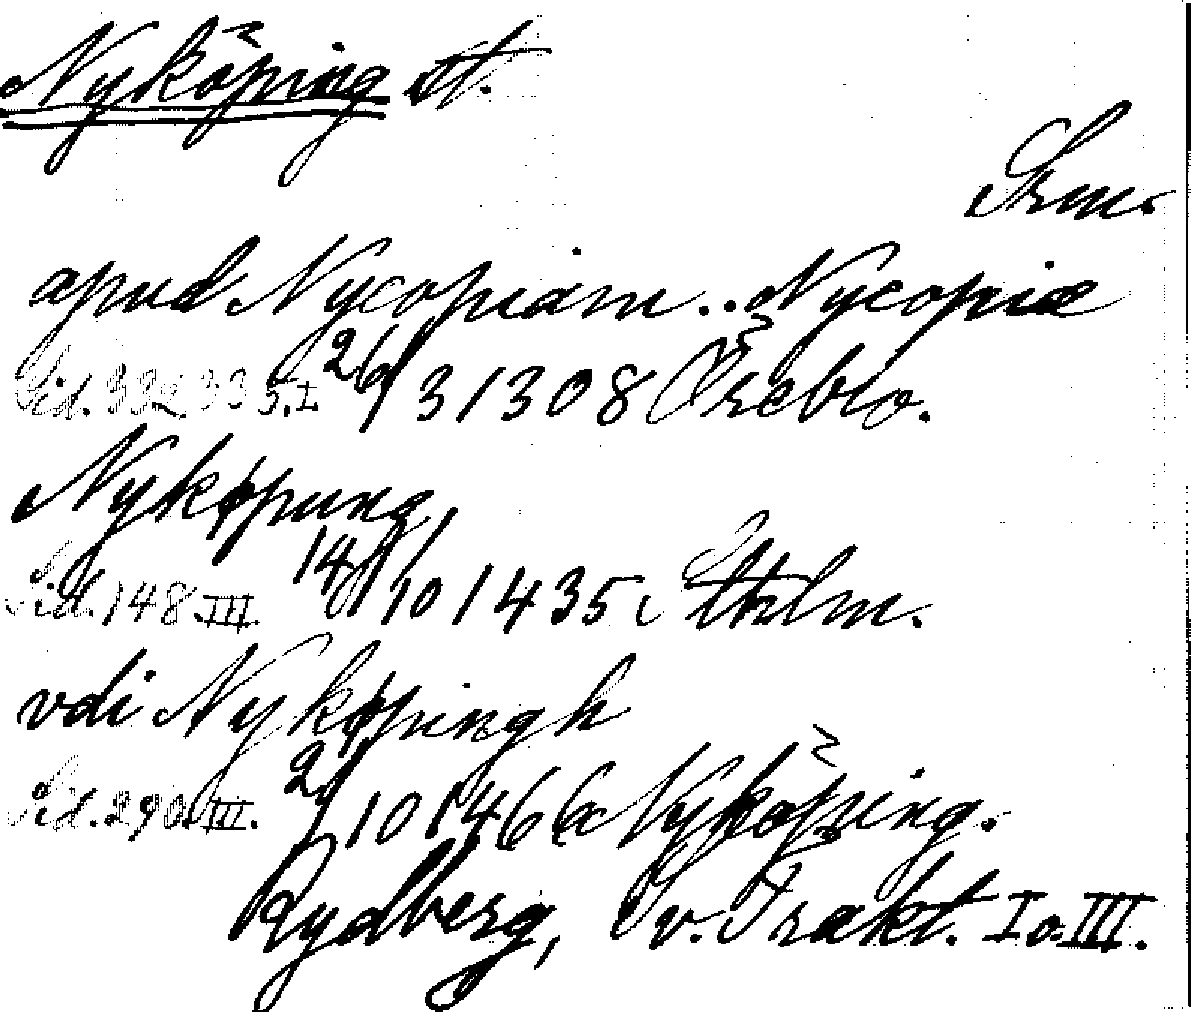 Nyköping st.
Srm.
apud Nycopiam .. Nycopiæ
Sid. 332 335. I. 26/3 1308 Örebro.
Nykøpung
Sid. 148. III. 14/10 1435 Sthlm.
vdi Nykøpingh
Sid. 290. III. 2/10 1466 Nyköping.
Rydberg, Sv. Trakt. I o. III.